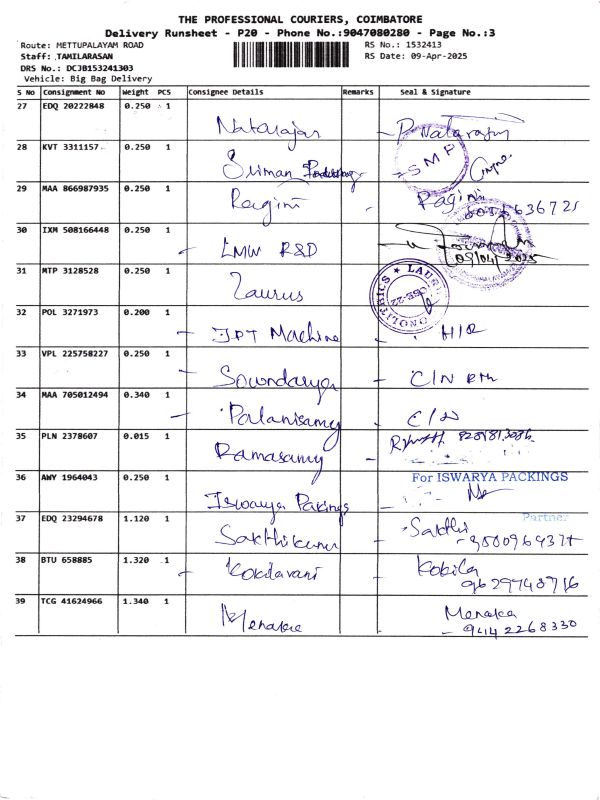 THE PROFESSIONAL COURIERS, COIMBATORE
Delivery Runsheet - P20 - Phone No.:9047080280 - Page No.:3
Route: METTUPALAYAM ROAD RS No.: 1532413
Staff: TAMILARASAN RS Date: 09-Apr-2025
DRS No.: DCJB153241303
Vehicle: Big Bag Delivery
S No Consignment No Weight PCS Consignee Details Remarks Seal & Signature
27 EDQ 20222848 0.250 1
Natarajan P. Natarajan
28 KVT 3311157 0.250 1
Sliman SMP
29 MAA 866987935 0.250 1
Ragini Ragini
30 IXM 508166448 0.250 1
LMW R&D 09/04/2025
31 MTP 3128528 0.250 1
Zaurus
32 POL 3271973 0.200 1
JPT Machine H/R
33 VPL 225758227 0.250 1
Sowndarya C/N
34 MAA 705012494 0.340 1
Palanisamy C/N
35 PLN 2378607 0.015 1
Ramasamy
36 AWY 1964043 0.250 1 For ISWARYA PACKINGS
Iswarya Pakings
37 EDQ 23294678 1.120 1 Partner
Sakthikumar Sakthi
38 BTU 658885 1.320 1
Kokilavani Kokila
9629748716
39 TCG 41624966 1.340 1
Menaka Menaka
9442268330